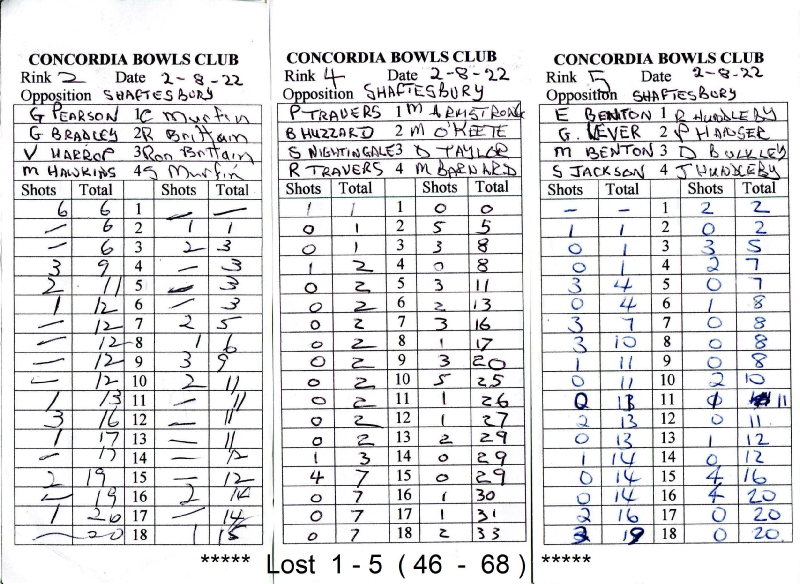 CONCORDIA BOWLS CLUB
Rink 2 Date 2-8-22
Opposition SHAFTESBURY
G PEARSON 1 C Murfin
G BRADLEY 2 R Brittain
V HARROP 3 Ron Brittain
M HAWKINS 4 G Murfin
Shots Total Shots Total
6 6 1 — —
— 6 2 1 1
— 6 3 2 3
3 9 4 — 3
2 11 5 — 3
1 12 6 — 3
— 12 7 2 5
— 12 8 1 6
— 12 9 3 9
— 12 10 2 11
1 13 11 — 11
3 16 12 — 11
1 17 13 — 11
— 17 14 — 12
2 19 15 — 12
— 19 16 2 14
1 20 17 — 14
— 20 18 1 15
CONCORDIA BOWLS CLUB
Rink 4 Date 2-8-22
Opposition SHAFTESBURY
P TRAVERS 1 M ARMSTRONG
B HUZZARD 2 M O'KEEFE
S NIGHTINGALE 3 D TAYLOR
R TRAVERS 4 M BARNARD
Shots Total Shots Total
1 1 1 0 0
0 1 2 5 5
0 1 3 3 8
1 2 4 0 8
0 2 5 3 11
0 2 6 2 13
0 2 7 3 16
0 2 8 1 17
0 2 9 3 20
0 2 10 5 25
0 2 11 1 26
0 2 12 1 27
0 2 13 2 29
1 3 14 0 29
4 7 15 0 29
0 7 16 1 30
0 7 17 1 31
0 7 18 2 33
CONCORDIA BOWLS CLUB
Rink 5 Date 2-8-22
Opposition SHAFTESBURY
E BENTON 1 R HUNDLEBY
G. LEVER 2 P HANGER
M BENTON 3 D BULKLEY
S JACKSON 4 J HUNDLEBY
Shots Total Shots Total
– – 1 2 2
1 1 2 0 2
0 1 3 3 5
0 1 4 2 7
3 4 5 0 7
0 4 6 1 8
3 7 7 0 8
3 10 8 0 8
1 11 9 0 8
0 11 10 2 10
0 13 11 1 11
2 13 12 0 11
0 13 13 1 12
1 14 14 0 12
0 14 15 4 16
0 14 16 4 20
2 16 17 0 20
3 19 18 0 20
***** Lost 1 - 5 ( 46 - 68 ) *****